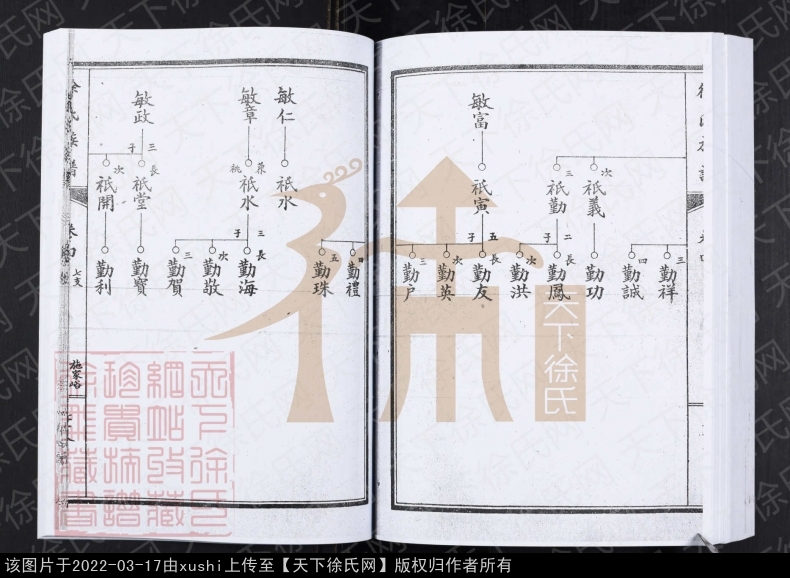 敏富
三 祇勤
次 祇義
祇寅
三 勤祥
四 勤誠
勤功
子 二 長 勤鳳
次 勤洪
子 五 長 勤友
次 勤英
三 勤户
敏仁
敏章
敏政
祇水
兼 祧 祇水
子 三 長 祇堂
次 祇開
四 勤禮
五 勤珠
子 三 長 勤海
次 勤敬
三 勤賀
勤寶
勤利
徐氏族譜
卷四
七支
施家峪
天下徐氏
天下徐氏网
该图片于2022-03-17由xushi上传至【天下徐氏网】版权归作者所有